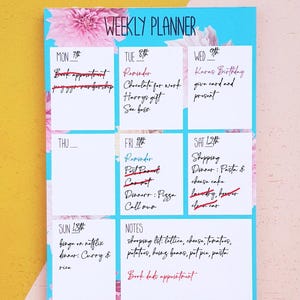 WEEKLY PLANNER
MON 7th
Book appointment
pay gym membership
TUE 8th
Reminder
Chocolate for work
Harrys gift
See boss
WED 9th
Karas Birthday
give card and
present
THU
FRI 11th
Reminder
Post Parcel
Car wash
Dinner: Pizza
Call mum
SAT 12th
Shopping
Dinner: Pasta &
cheese cake
laundry, hoover
SUN 13th
binge on netflix
dinner: Curry &
rice
NOTES
shopping list: lettice, cheese, tomatoes,
potatoes, beans, pasta
Book dads appointment